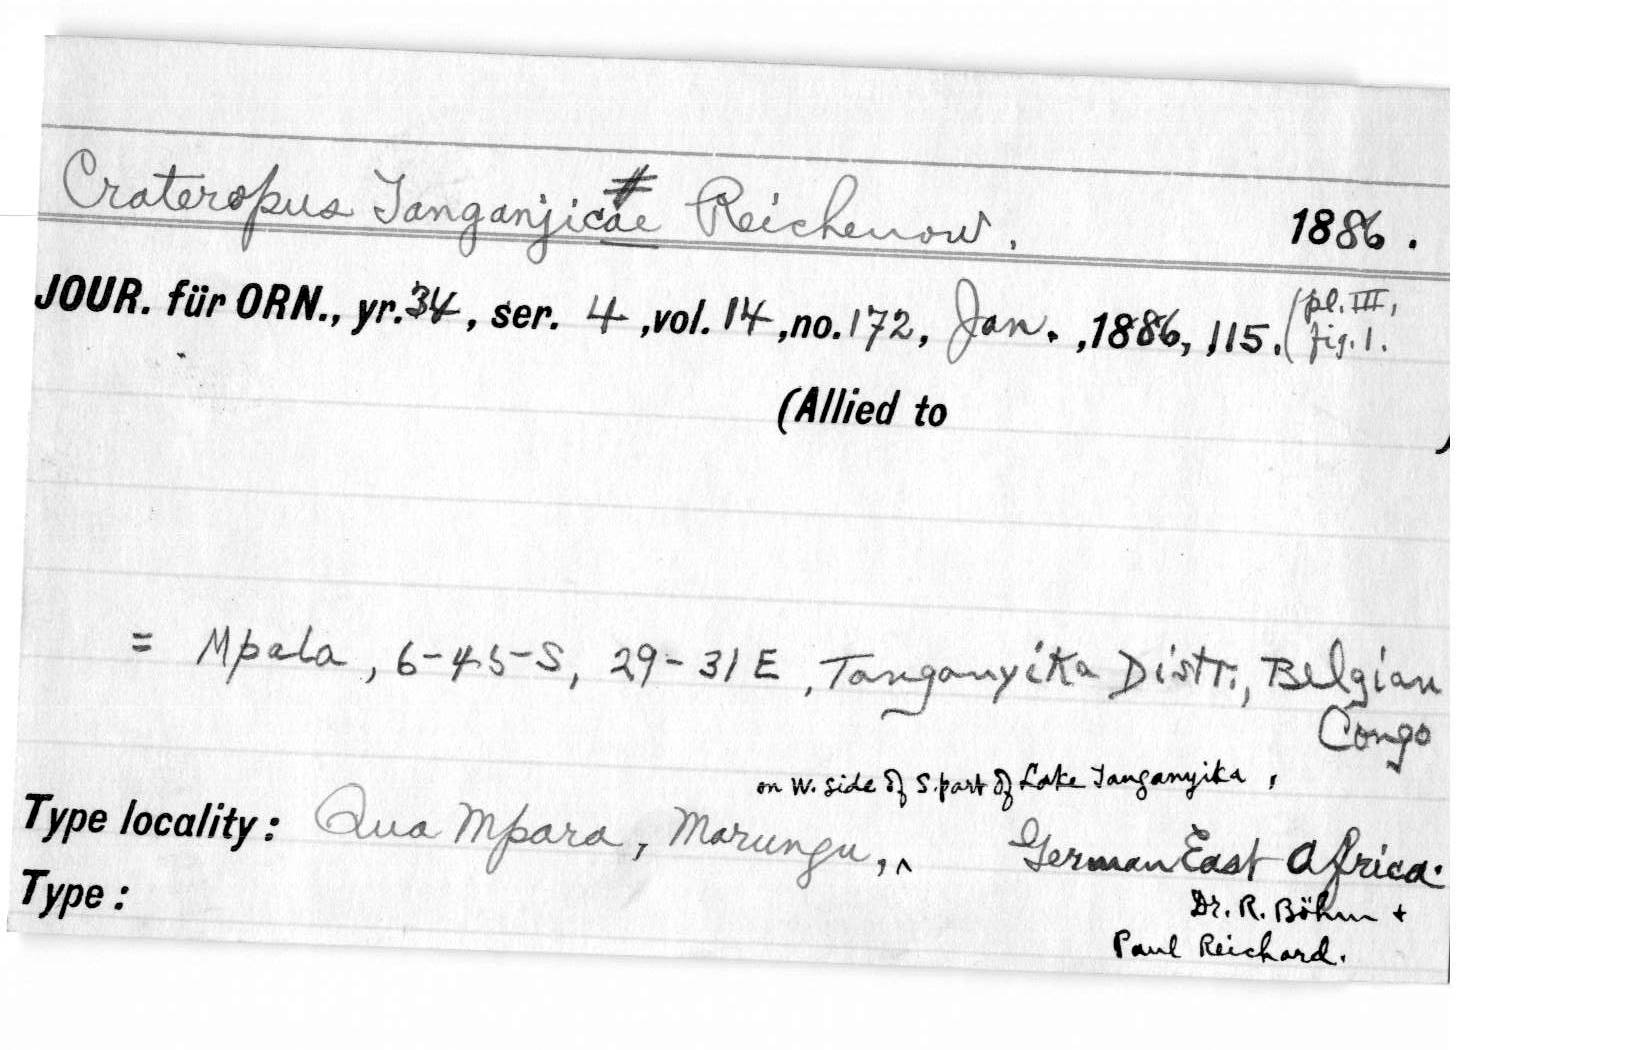 Crateropus Tanganjicae # Reichenow. 1886.
JOUR. für ORN., yr. 34, ser. 4, vol. 14, no. 172, Jan., 1886, 115. (pl. III,
fig. 1.
(Allied to )
= Mpala, 6-45-S, 29-31 E, Tanganyika Distr., Belgian
Congo
on W. side of S. part of Lake Tanganyika,
Type locality: Qua Mpara, Marungu, ^ German East Africa.
Type: Dr. R. Böhm +
Paul Reichard.